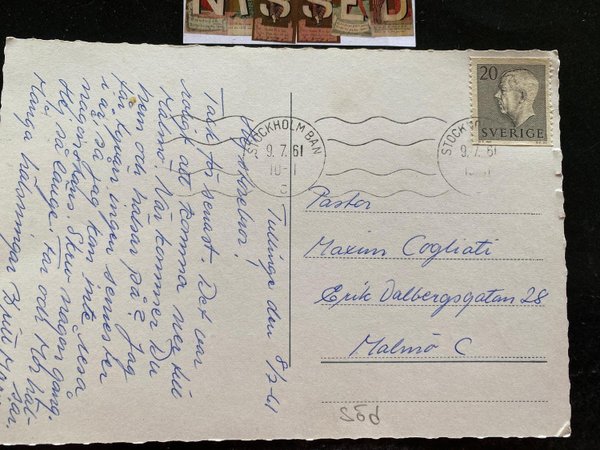 NISSED
20
SVERIGE
STOCKHOLM BAN
9.7.61
C
STOCK
9.7.61
Tullinge den 8/7-61
Tack för senast. Det var
roligt att komma ner till
Malmö. När kommer Du
hem och hälsar på? Jag
får ingen semester
i år, så jag kan inte resa
någonstans. Skriv någon gång.
Hej så länge. Far och Mor häl-
sar.
Många hälsningar Britt Marie
Pastor
Maxim Cogliati
Erik Dalbergsgatan 28
Malmö C